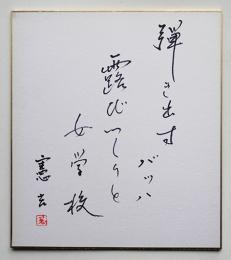 弾き出す
バッハ
露びっしりと
女学校
憲吉